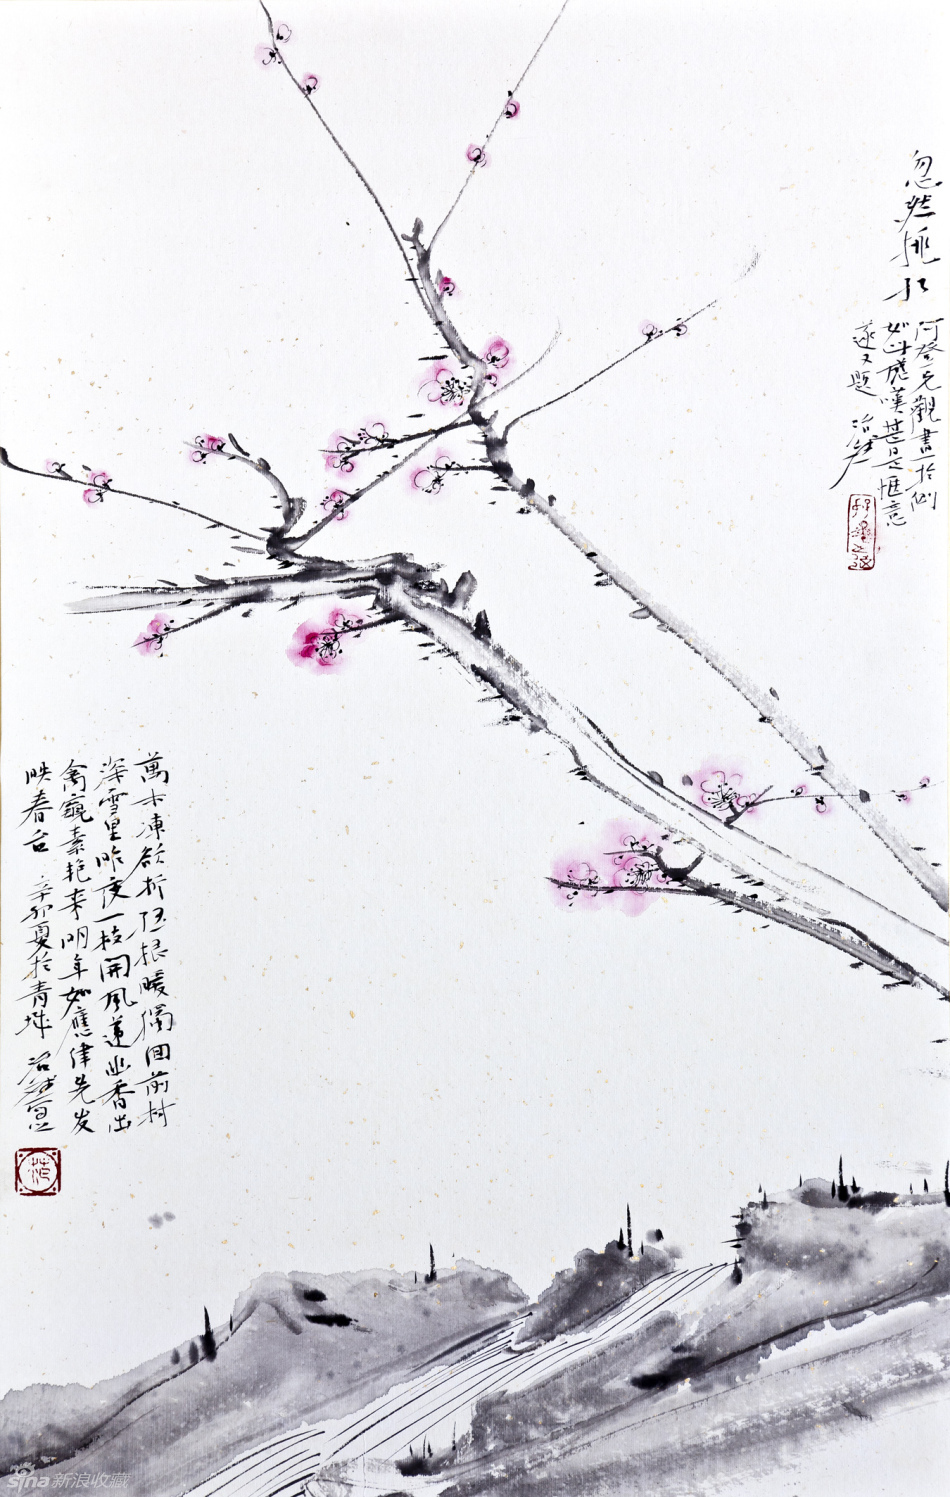 忽然桃红
阿登兄觀畫於側
如此感嘆甚是惬意
遂又題
萬木凍欲折孤根暖獨回前村
深雪里昨夜一枝開風遞幽香出
禽窺素艳来明年如應律先发
映春台 辛卯夏於青城
sina新浪收藏